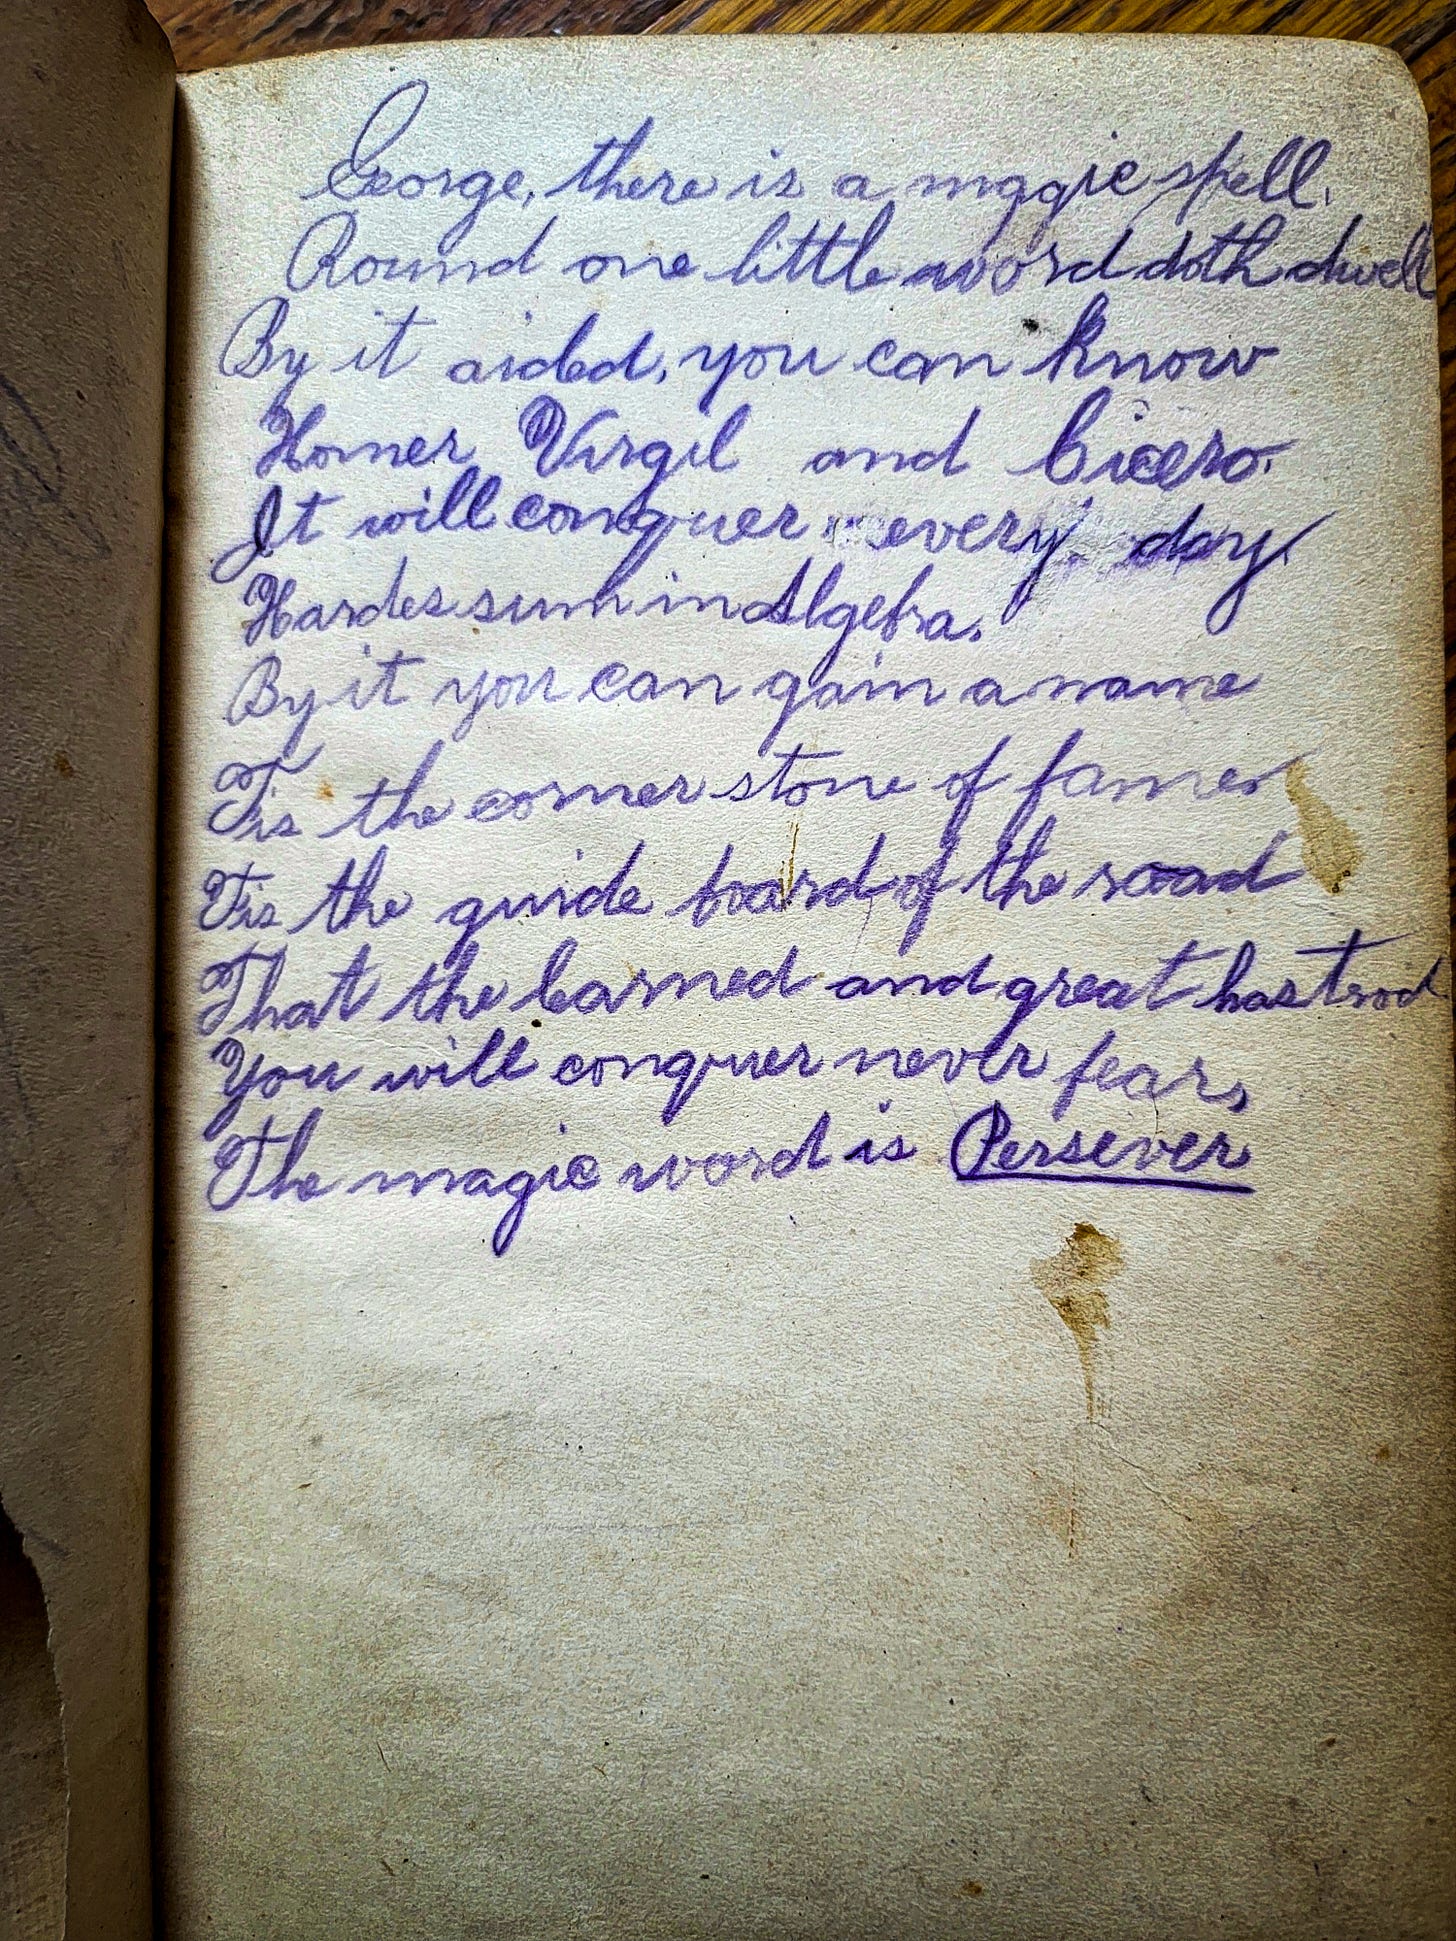 George, there is a magic spell.
Round one little word doth dwell
By it aided, you can know
Homer Virgil and Cicero.
It will conquer every day.
Hardes sum in Algebra.
By it you can gain a name
Tis the corner stone of
Tis the guide board of the road
That the learned and great has trod
You will conquer never fear,
The magic word is Persever